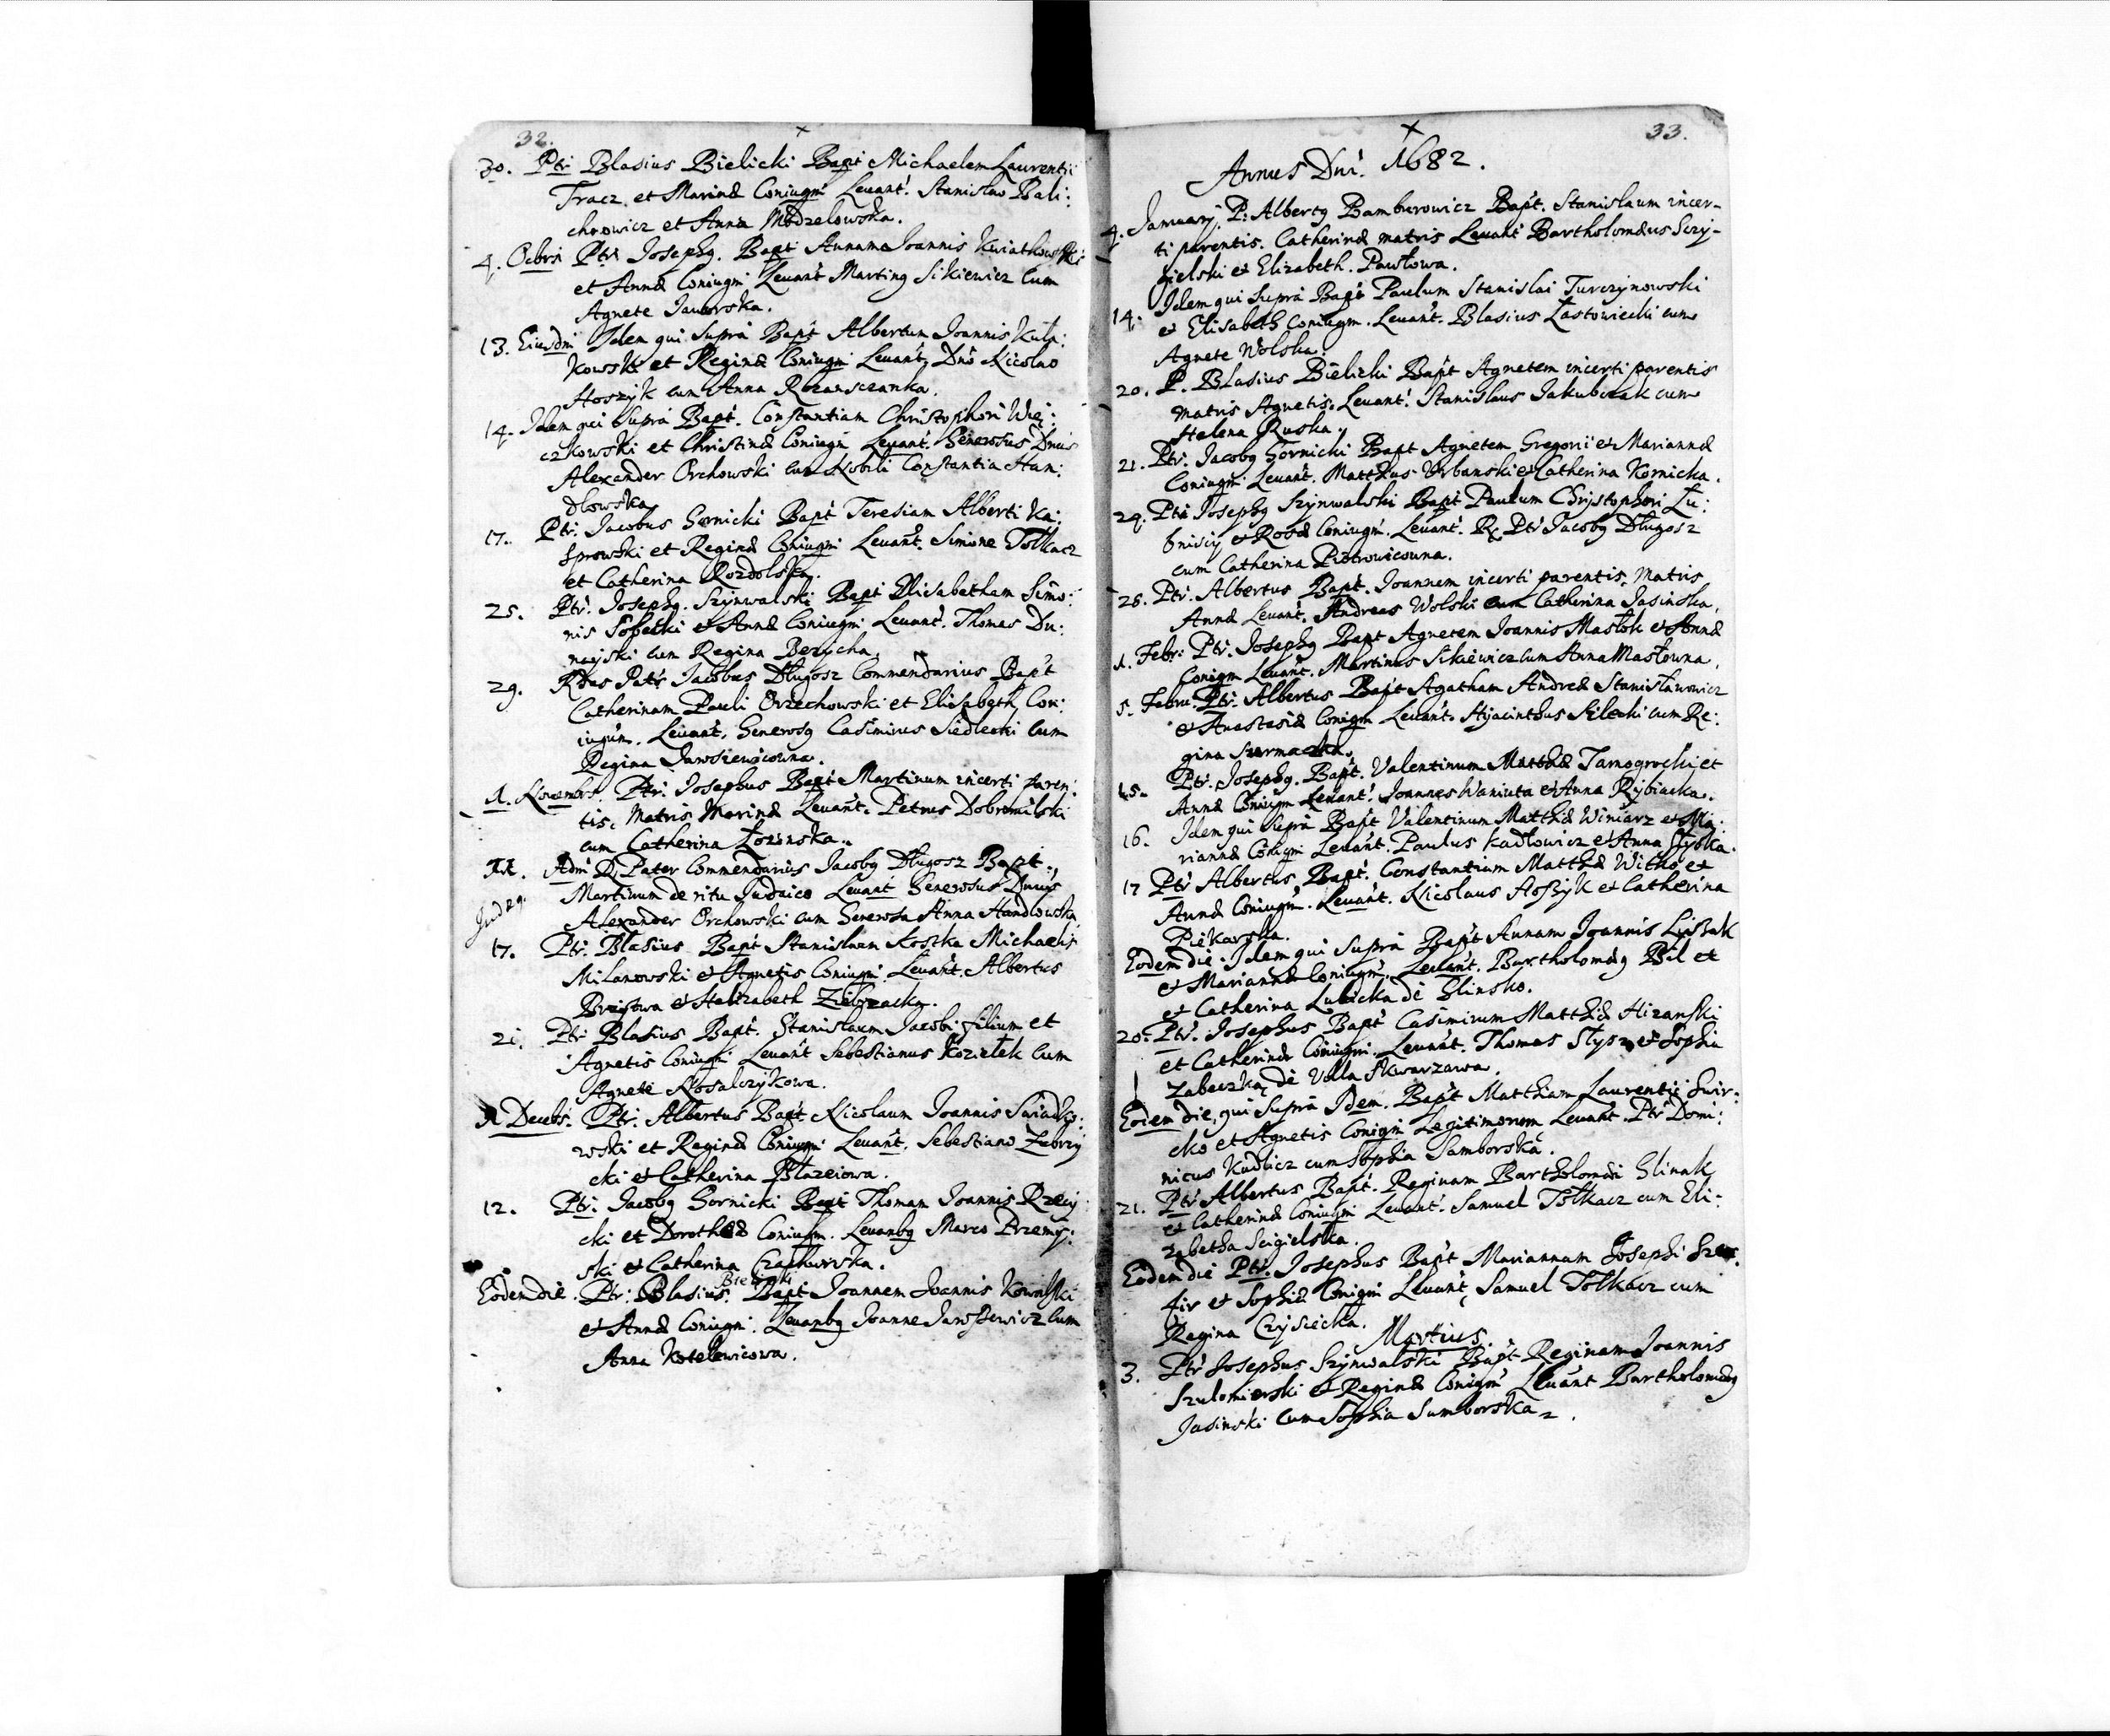 32.
30. Ptr. Blasius Bielicki Bapt Michaelem Laurentii
Tracz et Marinæ Coniugm Levant. Stanislao Bali:
chowicz et Anna Modzelowska.
4. Octbris Ptr Josephg. Bapt Annam Joannis Kwiatkowski
et Annæ Coniugm Levant Marting Sikiewicz cum
Agnete Jaworska.
13. Eiusdm Idem qui supra Bapt Albertum Joannis Kula:
kowski et Reginæ Coniugm Levant, Dno Nicolao
Hoszyk cum Anna
14. Idem qui supra Bapt. Constantiam Christophori Wię:
czkowski et Christinæ Coniugm Levant. Generosus Dnus
Alexander Orchowski cum Nobili Constantia Han:
dlowska
17. Ptr. Jacobus Gornicki Bapt Teresiam Alberti Ka:
sprowski et Reginæ Coniugm Levant. Simone Tołkacz
et Catherina Rozdolska.
25. Ptr. Josephg. Szynwalski Bapt Elisabetham Simo:
nis Sobecki et Annæ Coniugm Levant. Thomas Du:
nayski cum Regina Berycha.
29. Rdus Patr Jacobus Długosz Commendarius Bapt
Catherinam Pauli Orzechowski et Elisabeth Con:
iugum. Levant. Generosg Casimirus Siedlecki cum
Regina Jarosiewicowna.
1. Novembr. Ptr. Josephus Bapt Martinum incerti paren:
tis. Matris Marinæ Levant. Petrus Dobromilski
cum Catherina Łozinska.
11. Adm R. Pater Commendarius Jacobg Długosz Bapt.
Judæg. Martinum de ritu Judaico Levant Generosus Dnus
Alexander Orchowski cum Generosa Anna Handlowska
17. Ptr. Blasius Bapt Stanislaum Kostka Michaelis
Milanowski et Agnetis Coniugm Levant. Albertus
Brzistwa et Helizabeth
21. Ptr Blasius Bapt. Stanislaum Jacobi filium et
Agnetis Coniugm Levant Sebestianus Koziełek cum
Agnete Kosalczykowa.
Decebr. Ptr. Albertus Bapt Nicolaum Joannis
wski et Reginæ Coniugm Levant. Sebestiano Zubrzy
cki et Catherina Błazeiowa.
12. Ptr. Jacobg Gornicki Bapt Thomam Joannis Rzeczy
cki et Dorotheæ Coniugm. Levantbg Marco Przemy:
ski et Catherina Czachurska.
Bielicki
Eodem die. Ptr. Blasius. Bapt Joannem Joannis Kowalski
et Annæ Coniugm. Levantbg Joanne Jarosiewicz cum
Anna Kotelewicowa.
33.
Annus Dni. 1682.
4. January. P. Albertg Bamburowicz Bapt. Stanislaum incer-
ti parentis. Catherinæ matris Levant Bartholomæus Sczy-
gielski et Elizabeth. Pawłowa.
14. Idem qui supra Bapt Paulum Stanislai Turczynowski
et Elisabeth Coniugm. Levant. Blasius Łastowiecki cum
Agnete Wolska.
20. P. Blasius Bielicki Bapt Agnetem incerti parentis
matris Agnetis. Levant. Stanislaus Jakubczak cum
Helena Ruska.
21. Ptr. Jacobg Gornicki Bapt Agnetem Gregorii et Mariannæ
Coniugm Levant. Matthæus Urbanski et Catherina Kornicka.
24. Ptr Josephg Szynwalski Bapt Paulum Christophori Łu:
bniscij et Rosæ Coniugm. Levant. R. Ptr Jacobg Długosz
cum Catherina Piotrowicowna.
28. Ptr. Albertus Bapt. Joannem incerti parentis, Matris
Annæ Levant. Andreas Wolski cum Catherina Jasinska.
1. Febr: Ptr. Josephg Bapt Agnetem Joannis Masłok et Annæ
Coniugm Levant. Martinus Sikiewicz cum Anna Masłowna.
5. Febru: Ptr. Albertus Bapt Agatham Andreæ Stanisławowicz
et Anastasiæ Coniugm Levant. Hyacinthus Silecki cum Re:
gina
15. Ptr. Josephg. Bapt. Valentinum Matthiæ Tarnogrocki et
Annæ Coniugm Levant. Joannes Waniuta et Anna Rybiacka.
16. Idem qui supra Bapt Valentinum Matthiæ Winiarz et Ma:
riannæ Coniugm Levant. Paulus Kadłowicz et Anna
17 Ptr Albertus Bapt. Constantium Matthæ Witko et
Annæ Coniugm. Levant. Nicolaus Hoszyk et Catherina
Piekarska.
Eodem die. Idem qui supra Bapt Annam Joannis Lissak
et Mariannæ Coniugm. Levant. Bartholomæg Bil et
et Catherina Lubicka de Glinsko.
20. Ptr. Josephus Bapt Casimirum Matthiæ Hizanski
et Catherinæ Coniugm. Levant. Thomas Słysz et Sophia
Zabeczka de Villa Skwarzawa.
Eodem die, qui supra Idem. Bapt Matthiam Laurentii Swir:
cko et Agnetis Coniugm Legitimorum Levant. Ptr Domi:
nicus Kudlicz cum Sophia Samborska.
21. Ptr Albertus Bapt. Reginam Bartholomæi Glinak
et Catherinæ Coniugm Levant. Samuel Tołkacz cum Eli:
zabetha Scigielska.
Eodem die Ptr. Josephus Bapt Mariannam Josephi
et Sophiæ Coniugm Levant, Samuel Tołkacz cum
Regina Czysiecka.
Martius.
3. Ptr Josephus Szynwalski Bapt Reginam Joannis
Szulomierski et Reginæ Coniugm Levant Bartholomæg
Jasinski cum Sophia Samborska.